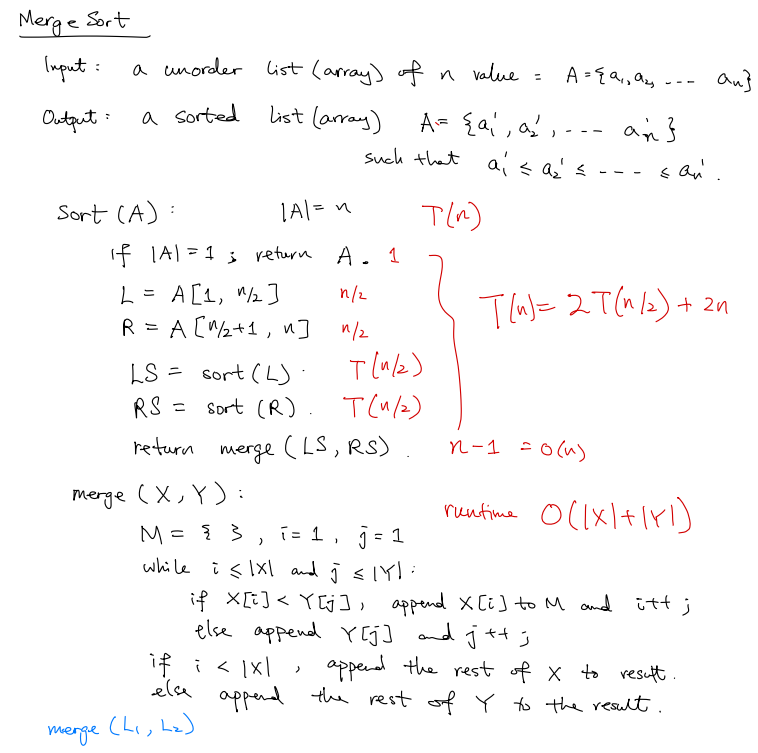 Merge Sort
Input : a unorder list (array) of n value = A = {a₁, a₂, --- aₙ}
Output : a sorted list (array) A = {a₁', a₂', --- aₙ'}
such that a₁' ≤ a₂' ≤ --- ≤ aₙ'.
Sort (A) : |A| = n T(n)
if |A| = 1 ; return A . 1
L = A [1, n/2] n/2
R = A [n/2+1, n] n/2
T(n) = 2T(n/2) + 2n
LS = sort (L) . T(n/2)
RS = sort (R) . T(n/2)
return merge (LS, RS) . n-1 = O(n)
merge (X, Y) :
runtime O(|X|+|Y|)
M = { } , i = 1 , j = 1
while i ≤ |X| and j ≤ |Y| :
if X[i] < Y[j] , append X[i] to M and i++ ;
else append Y[j] and j++ ;
if i < |X| , append the rest of X to result .
else append the rest of Y to the result .
merge (L₁, L₂)